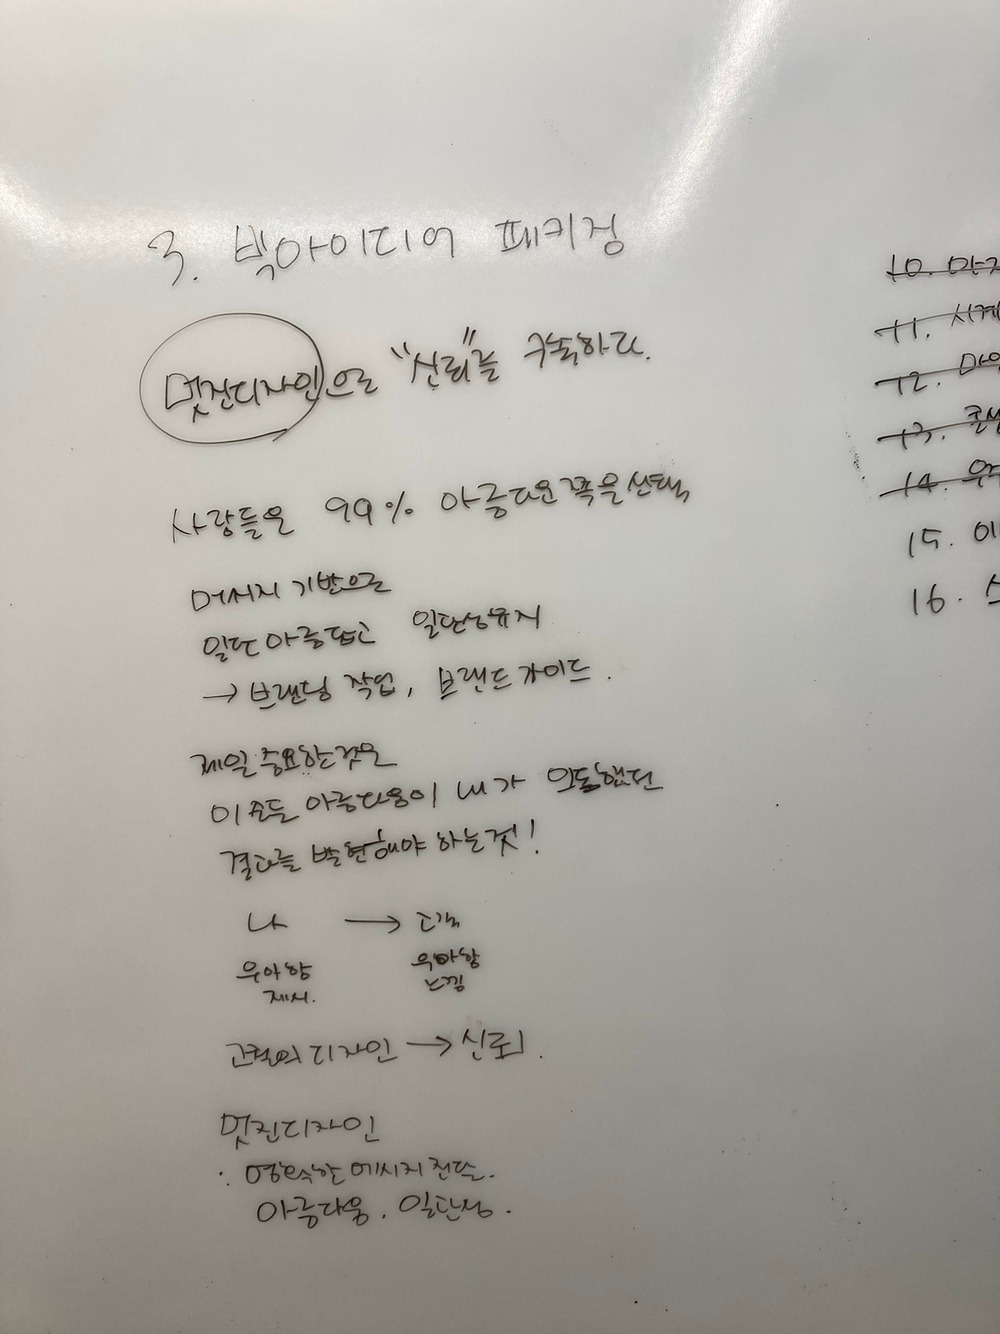 3. 빅아이디어 패키징
멋진디자인으로 "신뢰"를 구축하다.
사람들은 99% 아름다운쪽을선택,
메시지 기반으로
일단 아름답고 일관성유지
→ 브랜딩 작업, 브랜드가이드.
제일 중요한것은
이 모든 아름다움이 내가 의도했던
결과를 발현해야 하는것!
나 → 고객
우아함 우아함
제시. 느낌
고객의 디자인 → 신뢰.
멋진디자인
: 명확한 메시지 전달.
아름다움. 일관성.
10.
11. 시계
12. 마
13.
14. 우주
15. 이
16. 스